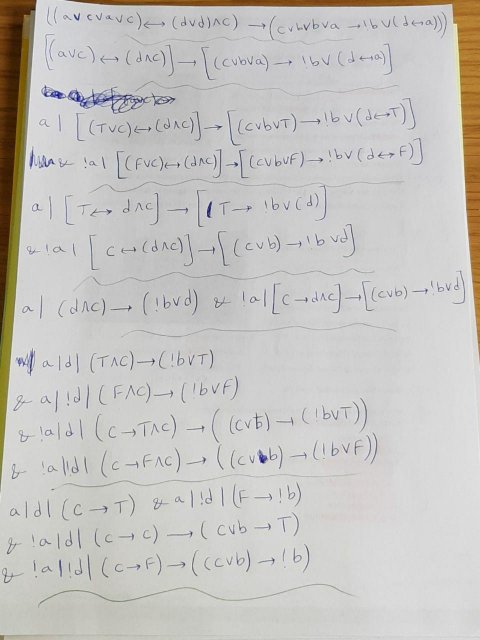 ((a∨c∨a∨c) ↔ (d∨d)∧c) → (c∨b∨b∨a → !b∨(d↔a)))
[(a∨c) ↔ (d∧c)] → [(c∨b∨a) → !b∨(d↔a)]
a | [(T∨c)↔(d∧c)] → [(c∨b∨T) → !b∨(d↔T)]
& !a | [(F∨c)↔(d∧c)] → [(c∨b∨F) → !b∨(d↔F)]
a | [T↔ d∧c] → [T → !b∨(d)]
& !a | [c↔(d∧c)] → [(c∨b) → !b∨d]
a | (d∧c) → (!b∨d) & !a | [c→d∧c] → [(c∨b) → !b∨d]
a|d| (T∧c) → (!b∨T)
& a|!d| (F∧c) → (!b∨F)
& !a|d| (c→T∧c) → ((c∨b) → (!b∨T))
& !a|!d| (c→F∧c) → ((c∨b) → (!b∨F))
a|d| (c→T) & a|!d| (F→!b)
& !a|d| (c→c) → (c∨b→T)
& !a|!d| (c→F) → ((c∨b) → !b)